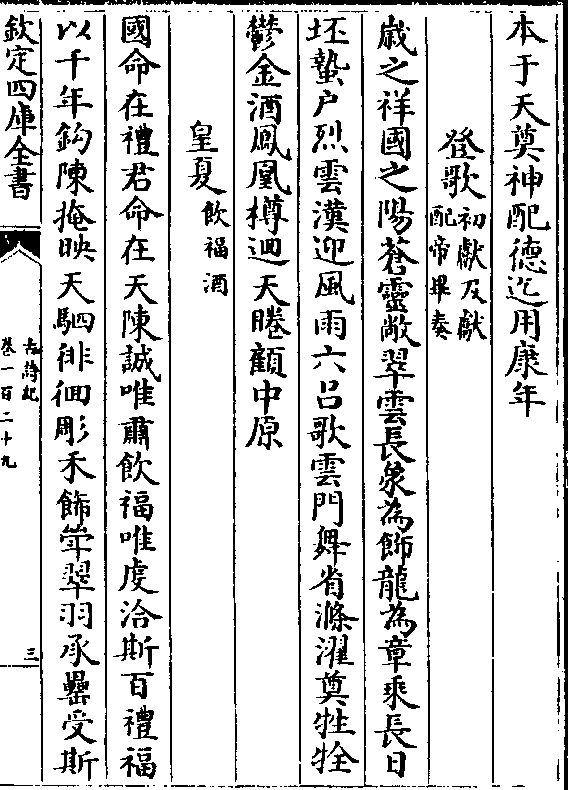 本于天奠神配德迄用康年
登歌初獻及獻
配帝畢奏
歲之祥國之陽蒼靈敞翠雲長象為飾龍為章乘長日
坯蟄户烈雲漢迎風雨六吕歌雲門舞省滌濯奠牲牷
鬱金酒鳳凰樽迴天睠顧中原
皇夏飲福酒
國命在禮君命在天陳誠唯肅飲福唯虔洽斯百禮福
以千年鈎陳掩映天駟徘徊彫禾飾斝翠羽承罍受斯
欽定四庫全書
古詩紀
卷一百二十九
三